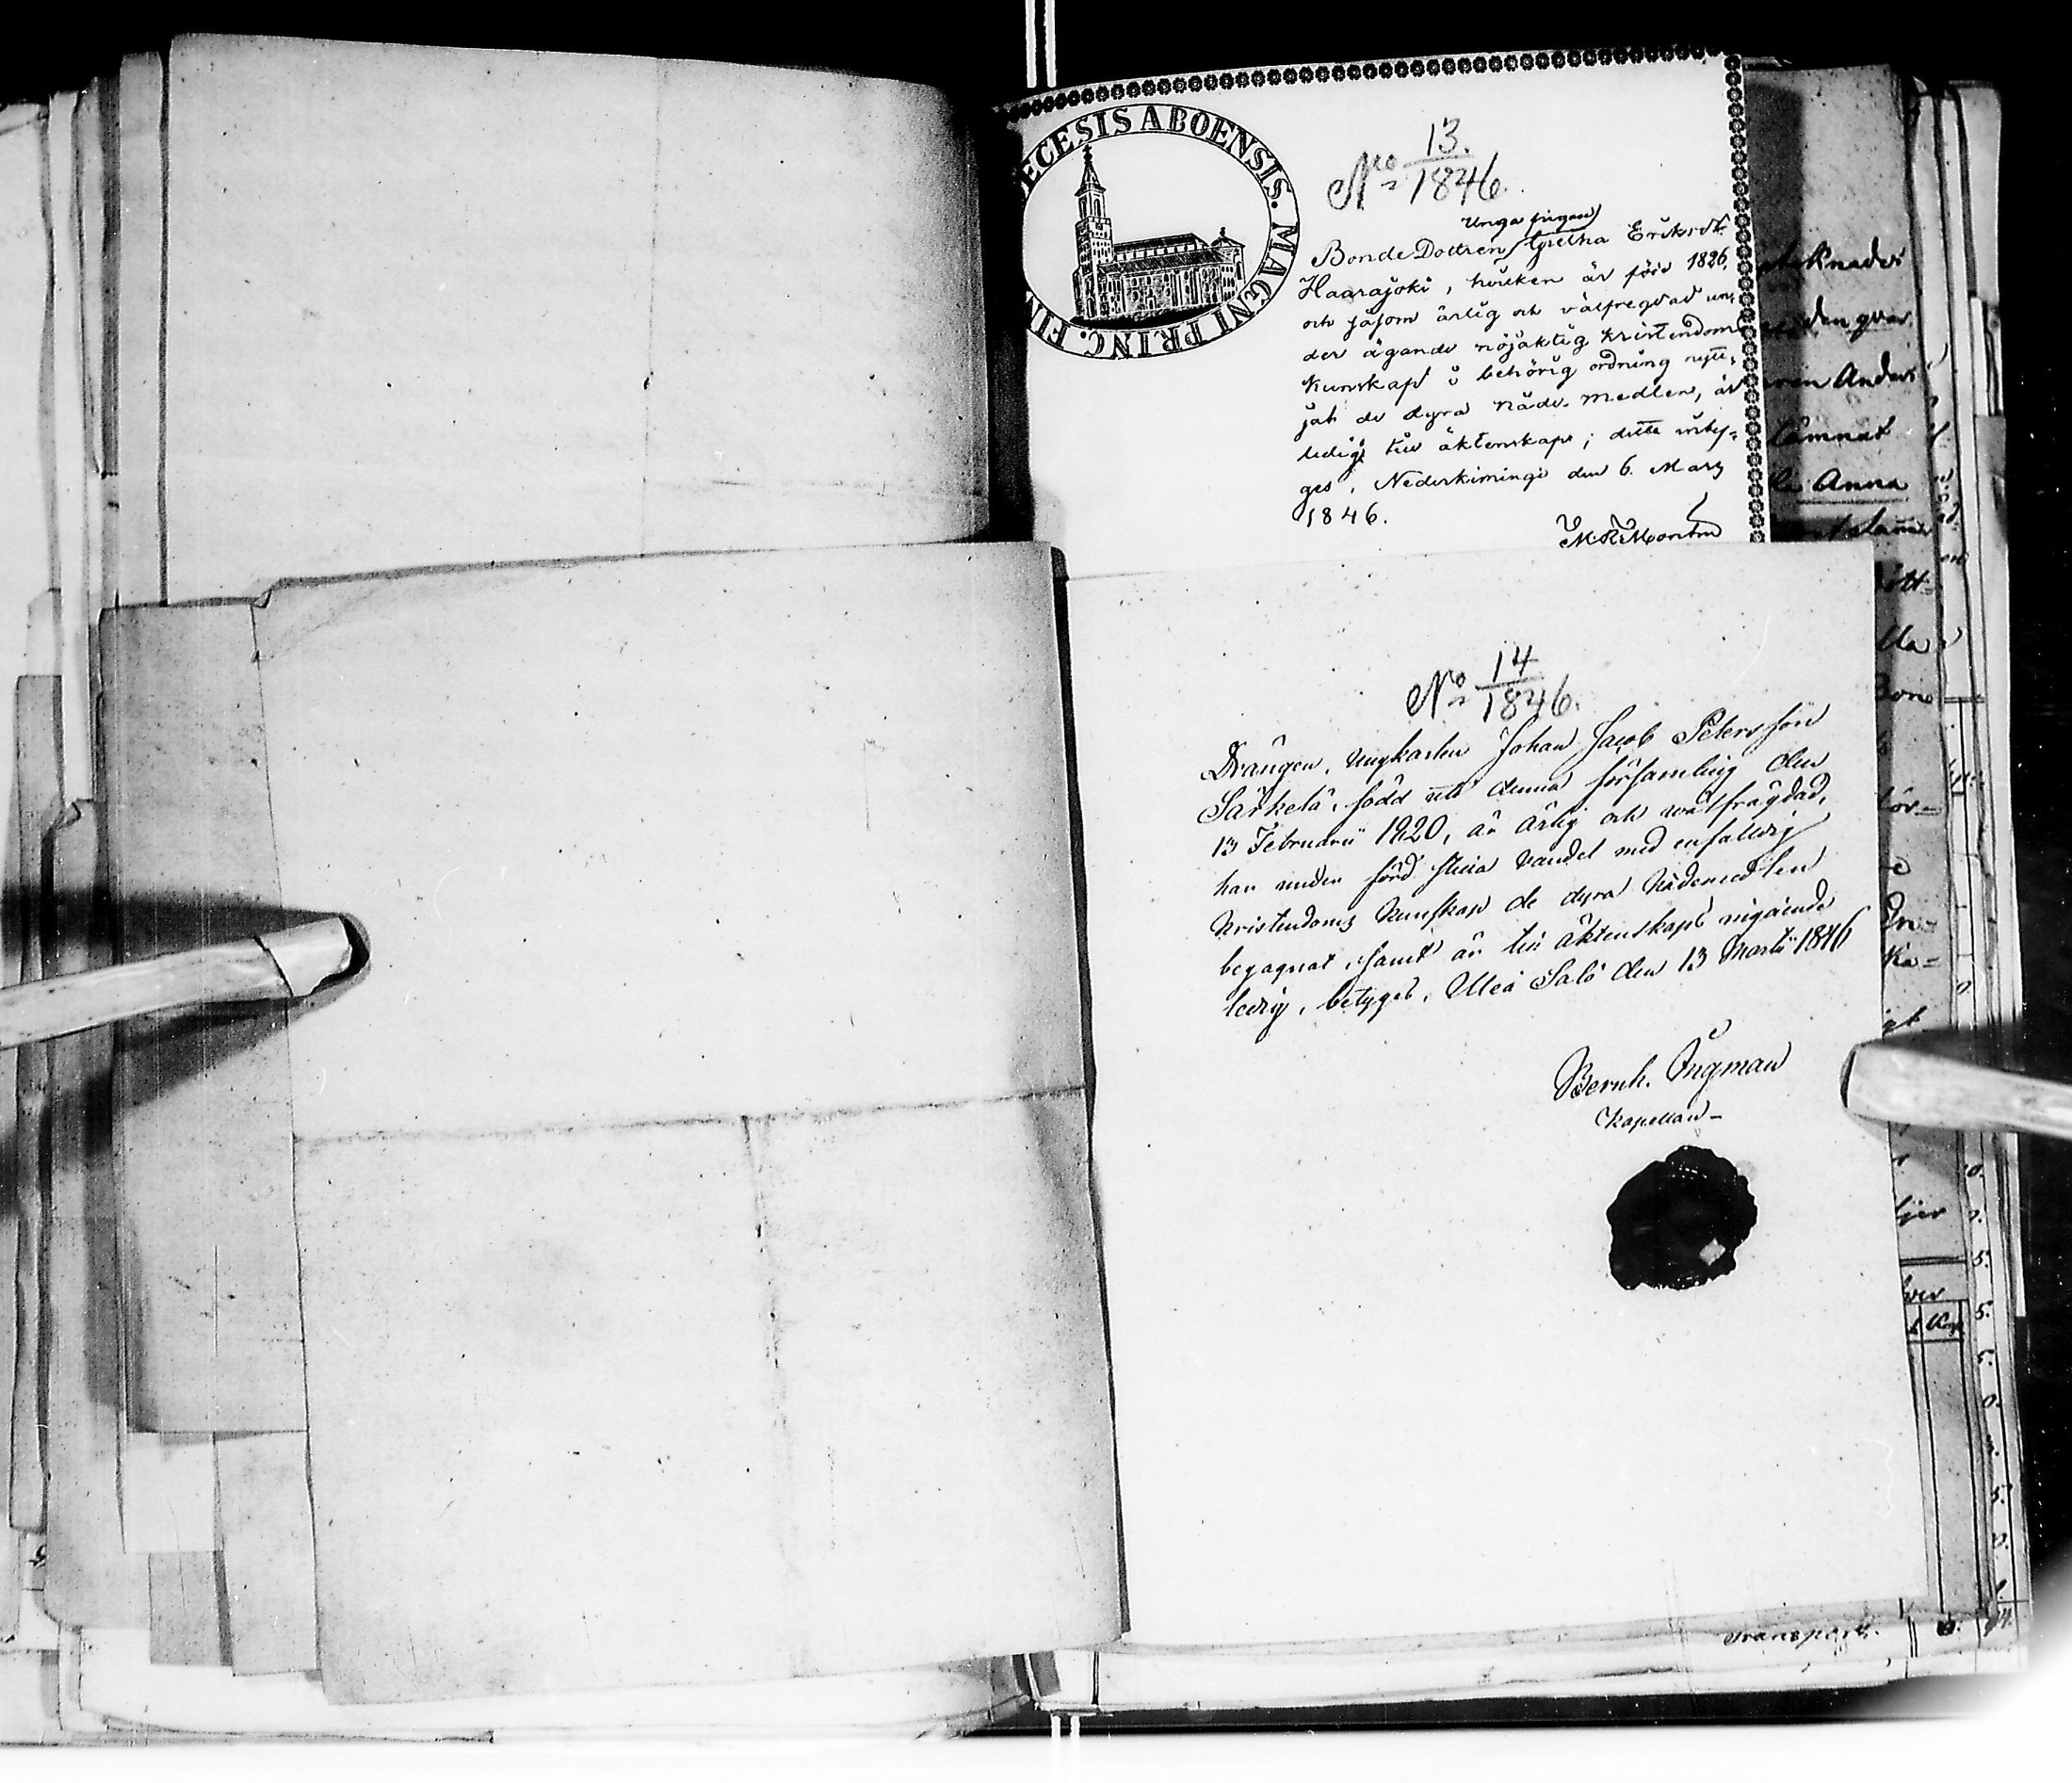 DECESIS ABOENSIS. MAGNI PRINC. FIN
No 13.
1846.
Unga pigan
Bonde Dottren Gretha Eriksdr
Haarajoki, hvilken är född 1826,
och såsom ärlig och välfregdad un,
der ägande nöjaktig kristendoms
kunskap i behörig ordning nytt,
jat de dyra nåde-medlen, är
ledig till äktenskap; detta intyg,
ges. Nederkimingi den 6. Mars
1846.
No 14
1846.
Drängen, Ungkarlen Johan Jacob Petersson
Särkelä, född uti denna församling den
13 Februarii 1820, är ärlig och wälfrägdad,
har under förd stilla vandel med enfalldig
Kristendoms kunskap de dyra Nådemedlen
begagnat, samt är till äktenskaps ingående
ledig, betygas, Uleå Salo den 13 Martii 1846
Bernh. Ingman
Kapellan
teknades
den qvar
Anders
lämnat
Anna
Transport.